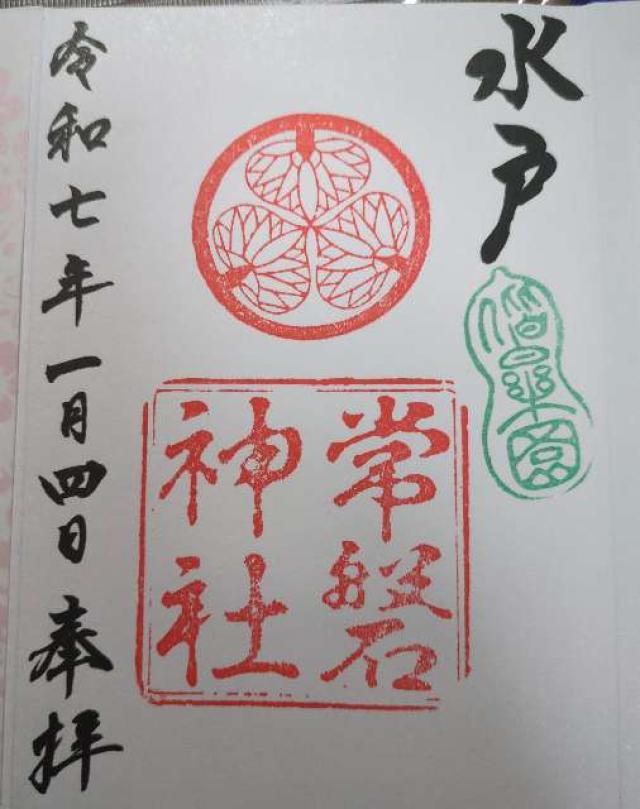 水戸
偕楽園
常磐
神社
令和七年一月四日奉拝